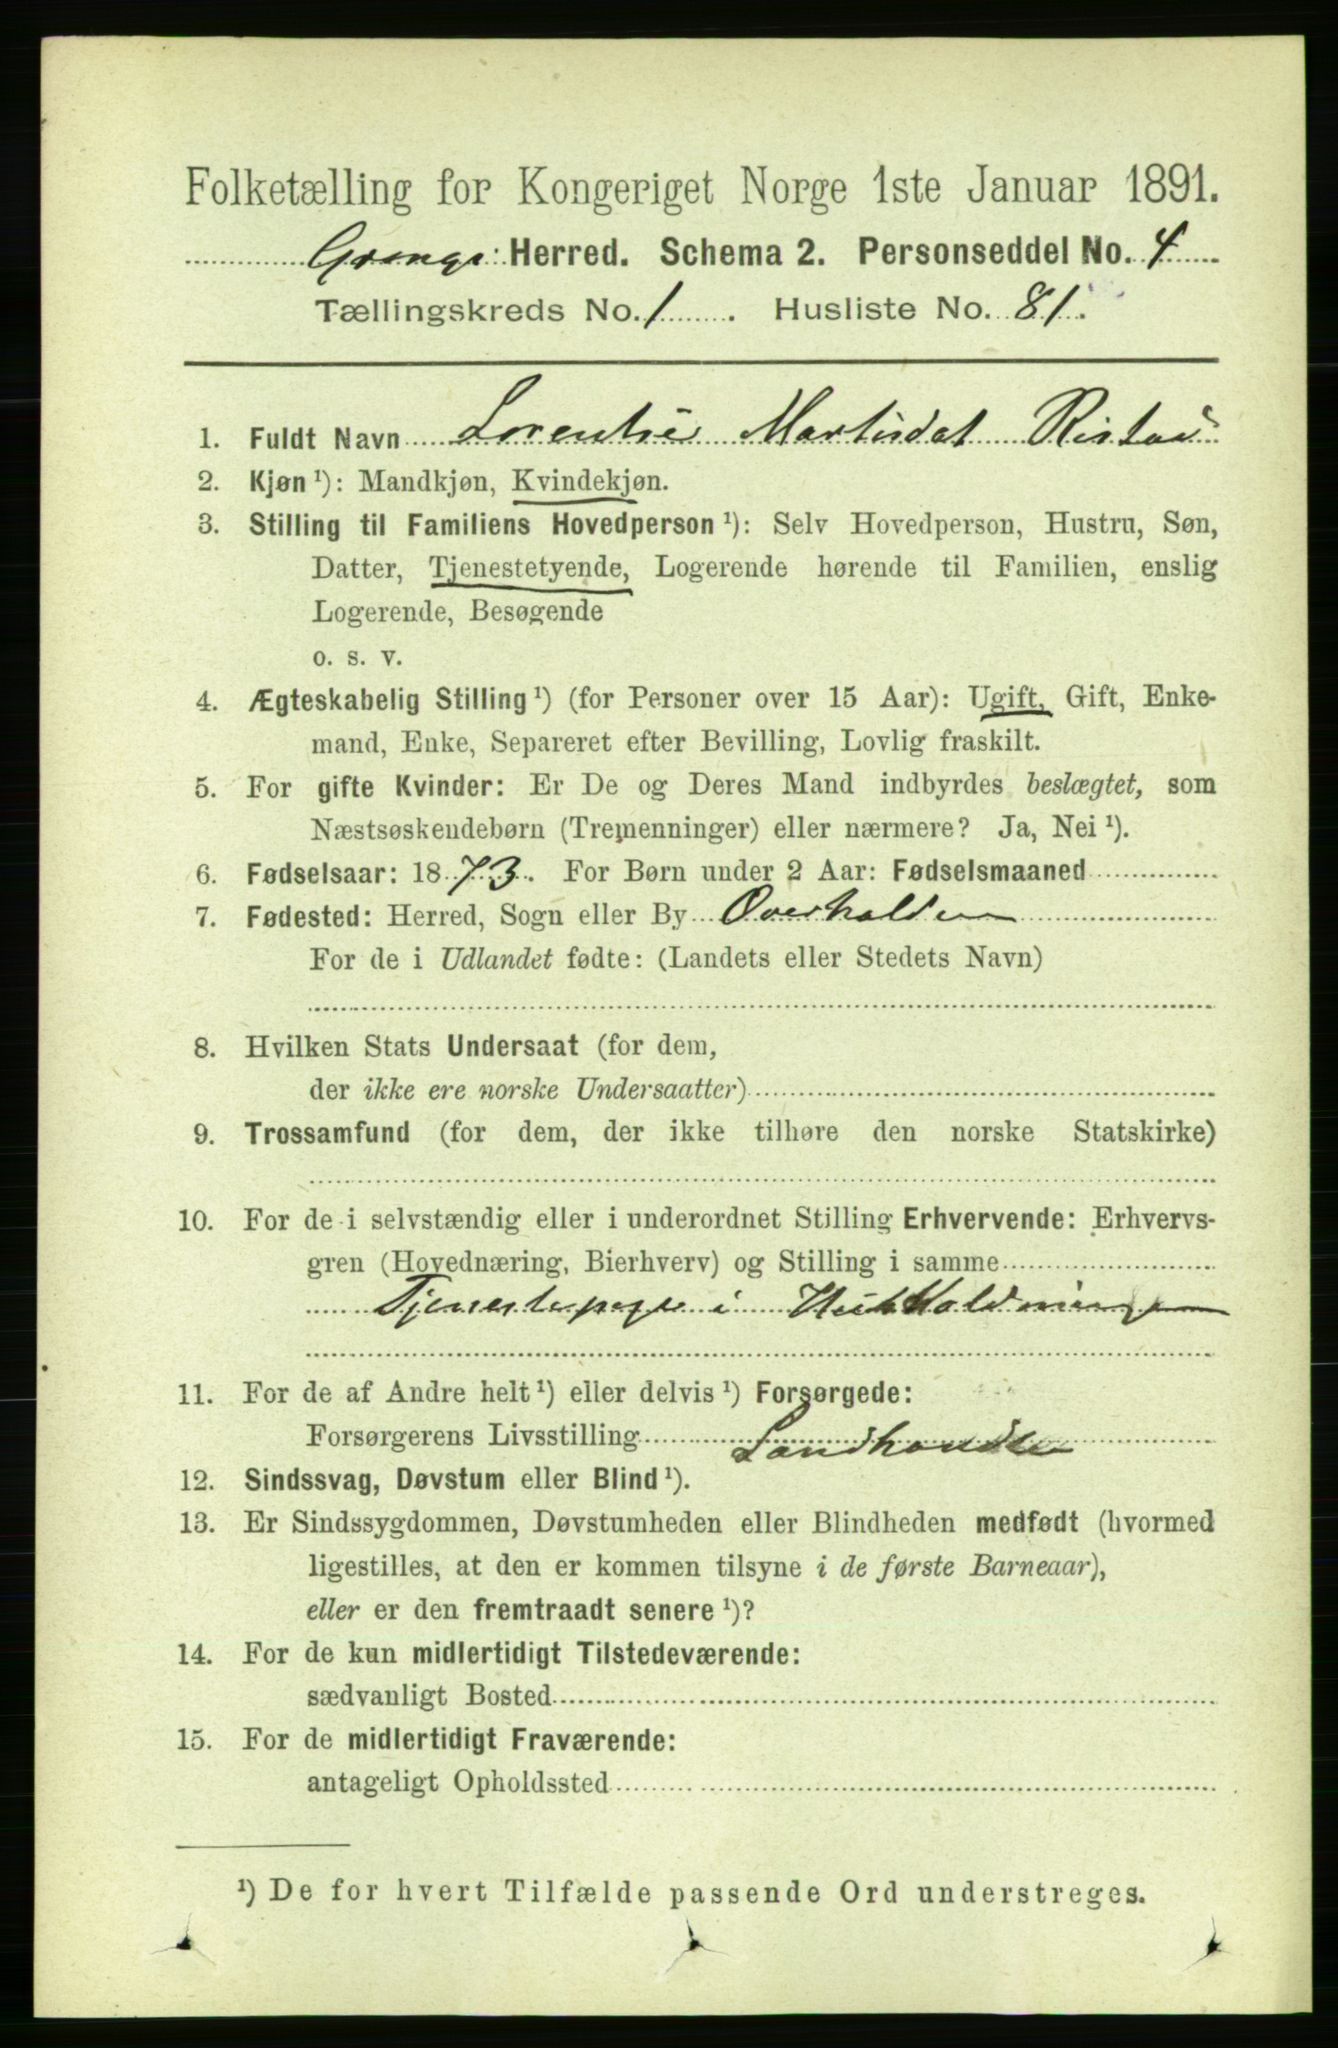 Folketælling for Kongeriget Norge 1ste Januar 1891.
Grong Herred. Schema 2. Personseddel No. 4
Tællingskreds No. 1. Husliste No. 81.
1. Fuldt Navn Lorentse Martisdat Ristad
2. Kjøn ¹): Mandkjøn, Kvindekjøn.
3. Stilling til Familiens Hovedperson ¹): Selv Hovedperson, Hustru, Søn,
Datter, Tjenestetyende, Logerende hørende til Familien, enslig
Logerende, Besøgende
o. s. v.
4. Ægteskabelig Stilling ¹) (for Personer over 15 Aar): Ugift, Gift, Enke-
mand, Enke, Separeret efter Bevilling, Lovlig fraskilt.
5. For gifte Kvinder: Er De og Deres Mand indbyrdes beslægtet, som
Næstsøskendebørn (Tremenninger) eller nærmere? Ja, Nei ¹).
6. Fødselsaar: 1873. For Børn under 2 Aar: Fødselsmaaned
7. Fødested: Herred, Sogn eller By Overhalden
For de i Udlandet fødte: (Landets eller Stedets Navn)
8. Hvilken Stats Undersaat (for dem,
der ikke ere norske Undersaatter)
9. Trossamfund (for dem, der ikke tilhøre den norske Statskirke)
10. For de i selvstændig eller i underordnet Stilling Erhvervende: Erhvervs-
gren (Hovednæring, Bierhverv) og Stilling i samme
Tjenestepige i Husholdningen
11. For de af Andre helt ¹) eller delvis ¹) Forsørgede:
Forsørgerens Livsstilling Landhandler
12. Sindssvag, Døvstum eller Blind ¹).
13. Er Sindssygdommen, Døvstumheden eller Blindheden medfødt (hvormed
ligestilles, at den er kommen tilsyne i de første Barneaar),
eller er den fremtraadt senere ¹)?
14. For de kun midlertidigt Tilstedeværende:
sædvanligt Bosted
15. For de midlertidigt Fraværende:
antageligt Opholdssted
¹) De for hvert Tilfælde passende Ord understreges.